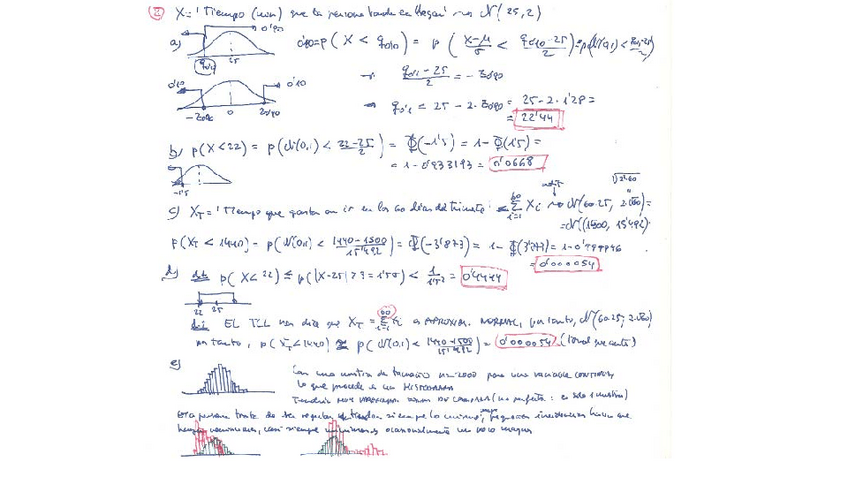 2 X = "Tiempo (min) que la persona tarda en llegar" ~ N(25,2)
a) 0'10 = P(X < q0'10) = P( X-μ/σ < q0'10-25/2 ) = P(N(0,1) <
0'90
q0'10 25
→ q0'1-25/2 = -Z0'90
0'10 0'10
→ q0'1 = 25 - 2·Z0'90 = 25 - 2·1'28 =
-Z0'90 0 Z0'90
= 22'44
b) P(X<22) = P(N(0,1) < 22-25/2) = Φ(-1'5) = 1-Φ(1'5) =
= 1-0'933193 = 0'0668
-1'5
c) XT = "Tiempo que gasta en ir en los 60 días del trimestre" = Σ Xi ~ N(60·25, 2√60) =
= N(1500, 15'492)
P(XT < 1440) = P(N(0,1) < 1440-1500/15'492) = Φ(-3'873) = 1-Φ(3'873) = 1-0'999946
= 0'000054
d) P(X<22) ≤ P(|X-25| ≥ 3 = 1'5σ) < 1/1'5² = 0'4444
22 25
EL TCL nos dice que XT = Σ Xi es APROXIM. NORMAL, por tanto, N(60·25; 2·√60)
por tanto, P(XT<1440) ≅ P(N(0,1) < 1440-1500/15'492) = 0'000054 (Igual que antes)
e)
Con una muestra de tamaño n=2000 para una variable continua,
lo que procede es un HISTOGRAMA
Tendría muy forma de CAMPANA (no perfecta: es solo 1 muestra)
Esa persona trata de ser regular, siempre lo mismo, pequeñas incidencias hacen que